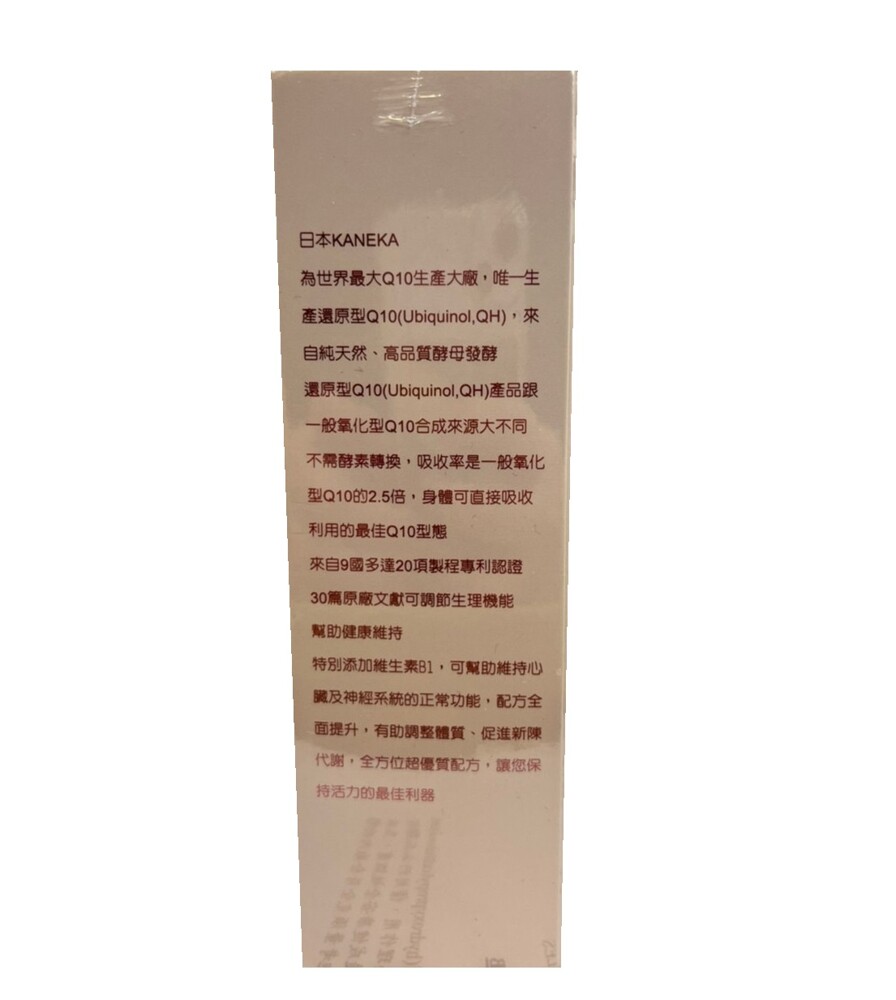 日本KANEKA
為世界最大Q10生產大廠，唯一生
產還原型Q10(Ubiquinol,QH)，來
自純天然、高品質酵母發酵
還原型Q10(Ubiquinol,QH)產品跟
一般氧化型Q10合成來源大不同
不需酵素轉換，吸收率是一般氧化
型Q10的2.5倍，身體可直接吸收
利用的最佳Q10型態
來自9國多達20項製程專利認證
30篇原廠文獻可調節生理機能
幫助健康維持
特別添加維生素B1，可幫助維持心
臟及神經系統的正常功能，配方全
面提升，有助調整體質、促進新陳
代謝，全方位超優質配方，讓您保
持活力的最佳利器